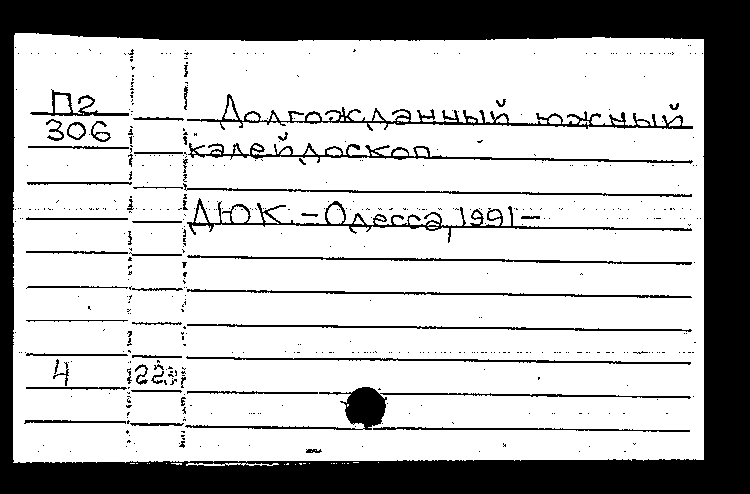 П2
306
Долгожданный южный
калейдоскоп
ДЮК. - Одесса, 1991-
4 223